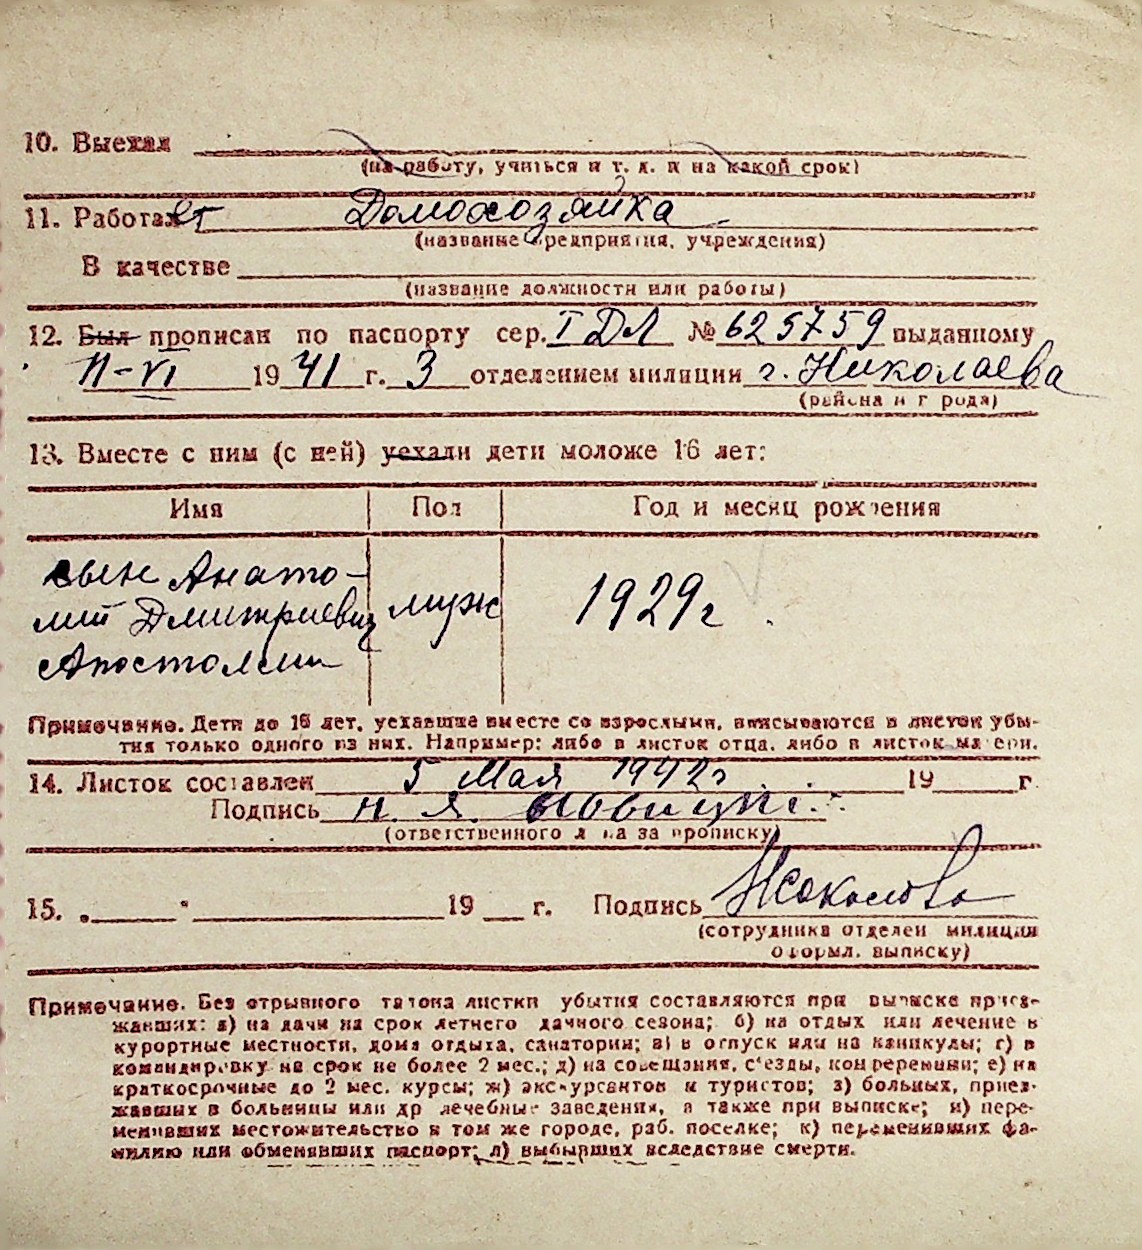 10. Выехал
(на работу, учиться и т. д. и на какой срок)
11. Работает Домохозяйка
(название предприятия, учреждения)
В качестве
(название должности или работы)
12. Был прописан по паспорту сер. I ДЛ № 625759 выданному
11-VI 1941 г. 3 отделением милиции г. Николаева
(района и города)
13. Вместе с ним (с ней) уехали дети моложе 16 лет:
Имя Пол Год и месяц рождения
сын Анато-
лий Дмитриевич муж 1929 г.
Апостолели
Примечание. Дети до 16 лет, уехавшие вместе со взрослыми, вписываются в листок убы-
тия только одного из них. Например: либо в листок отца, либо в листок матери.
14. Листок составлен 5 Мая 1942 г 19 г.
Подпись Н. Я.
(ответственного лица за прописку)
15. „ " 19 г. Подпись Соколова
(сотрудника отделен милиции
оформл. выписку)
Примечание. Без отрывного талона листки убытия составляются при выписке приез-
жавших: а) на дачи на срок летнего дачного сезона; б) на отдых или лечение в
курортные местности, дома отдыха, санатории; в) в отпуск или на каникулы; г) в
командировку на срок не более 2 мес.; д) на совещания, съезды, конференции; е) на
краткосрочные до 2 мес. курсы; ж) экскурсантов и туристов; з) больных, приез-
жавших в больницы или др лечебные заведения, а также при выписке; и) пере-
менивших местожительство в том же городе, раб. поселке; к) переменивших фа-
милию или обменявших паспорт; л) выбывших вследствие смерти.